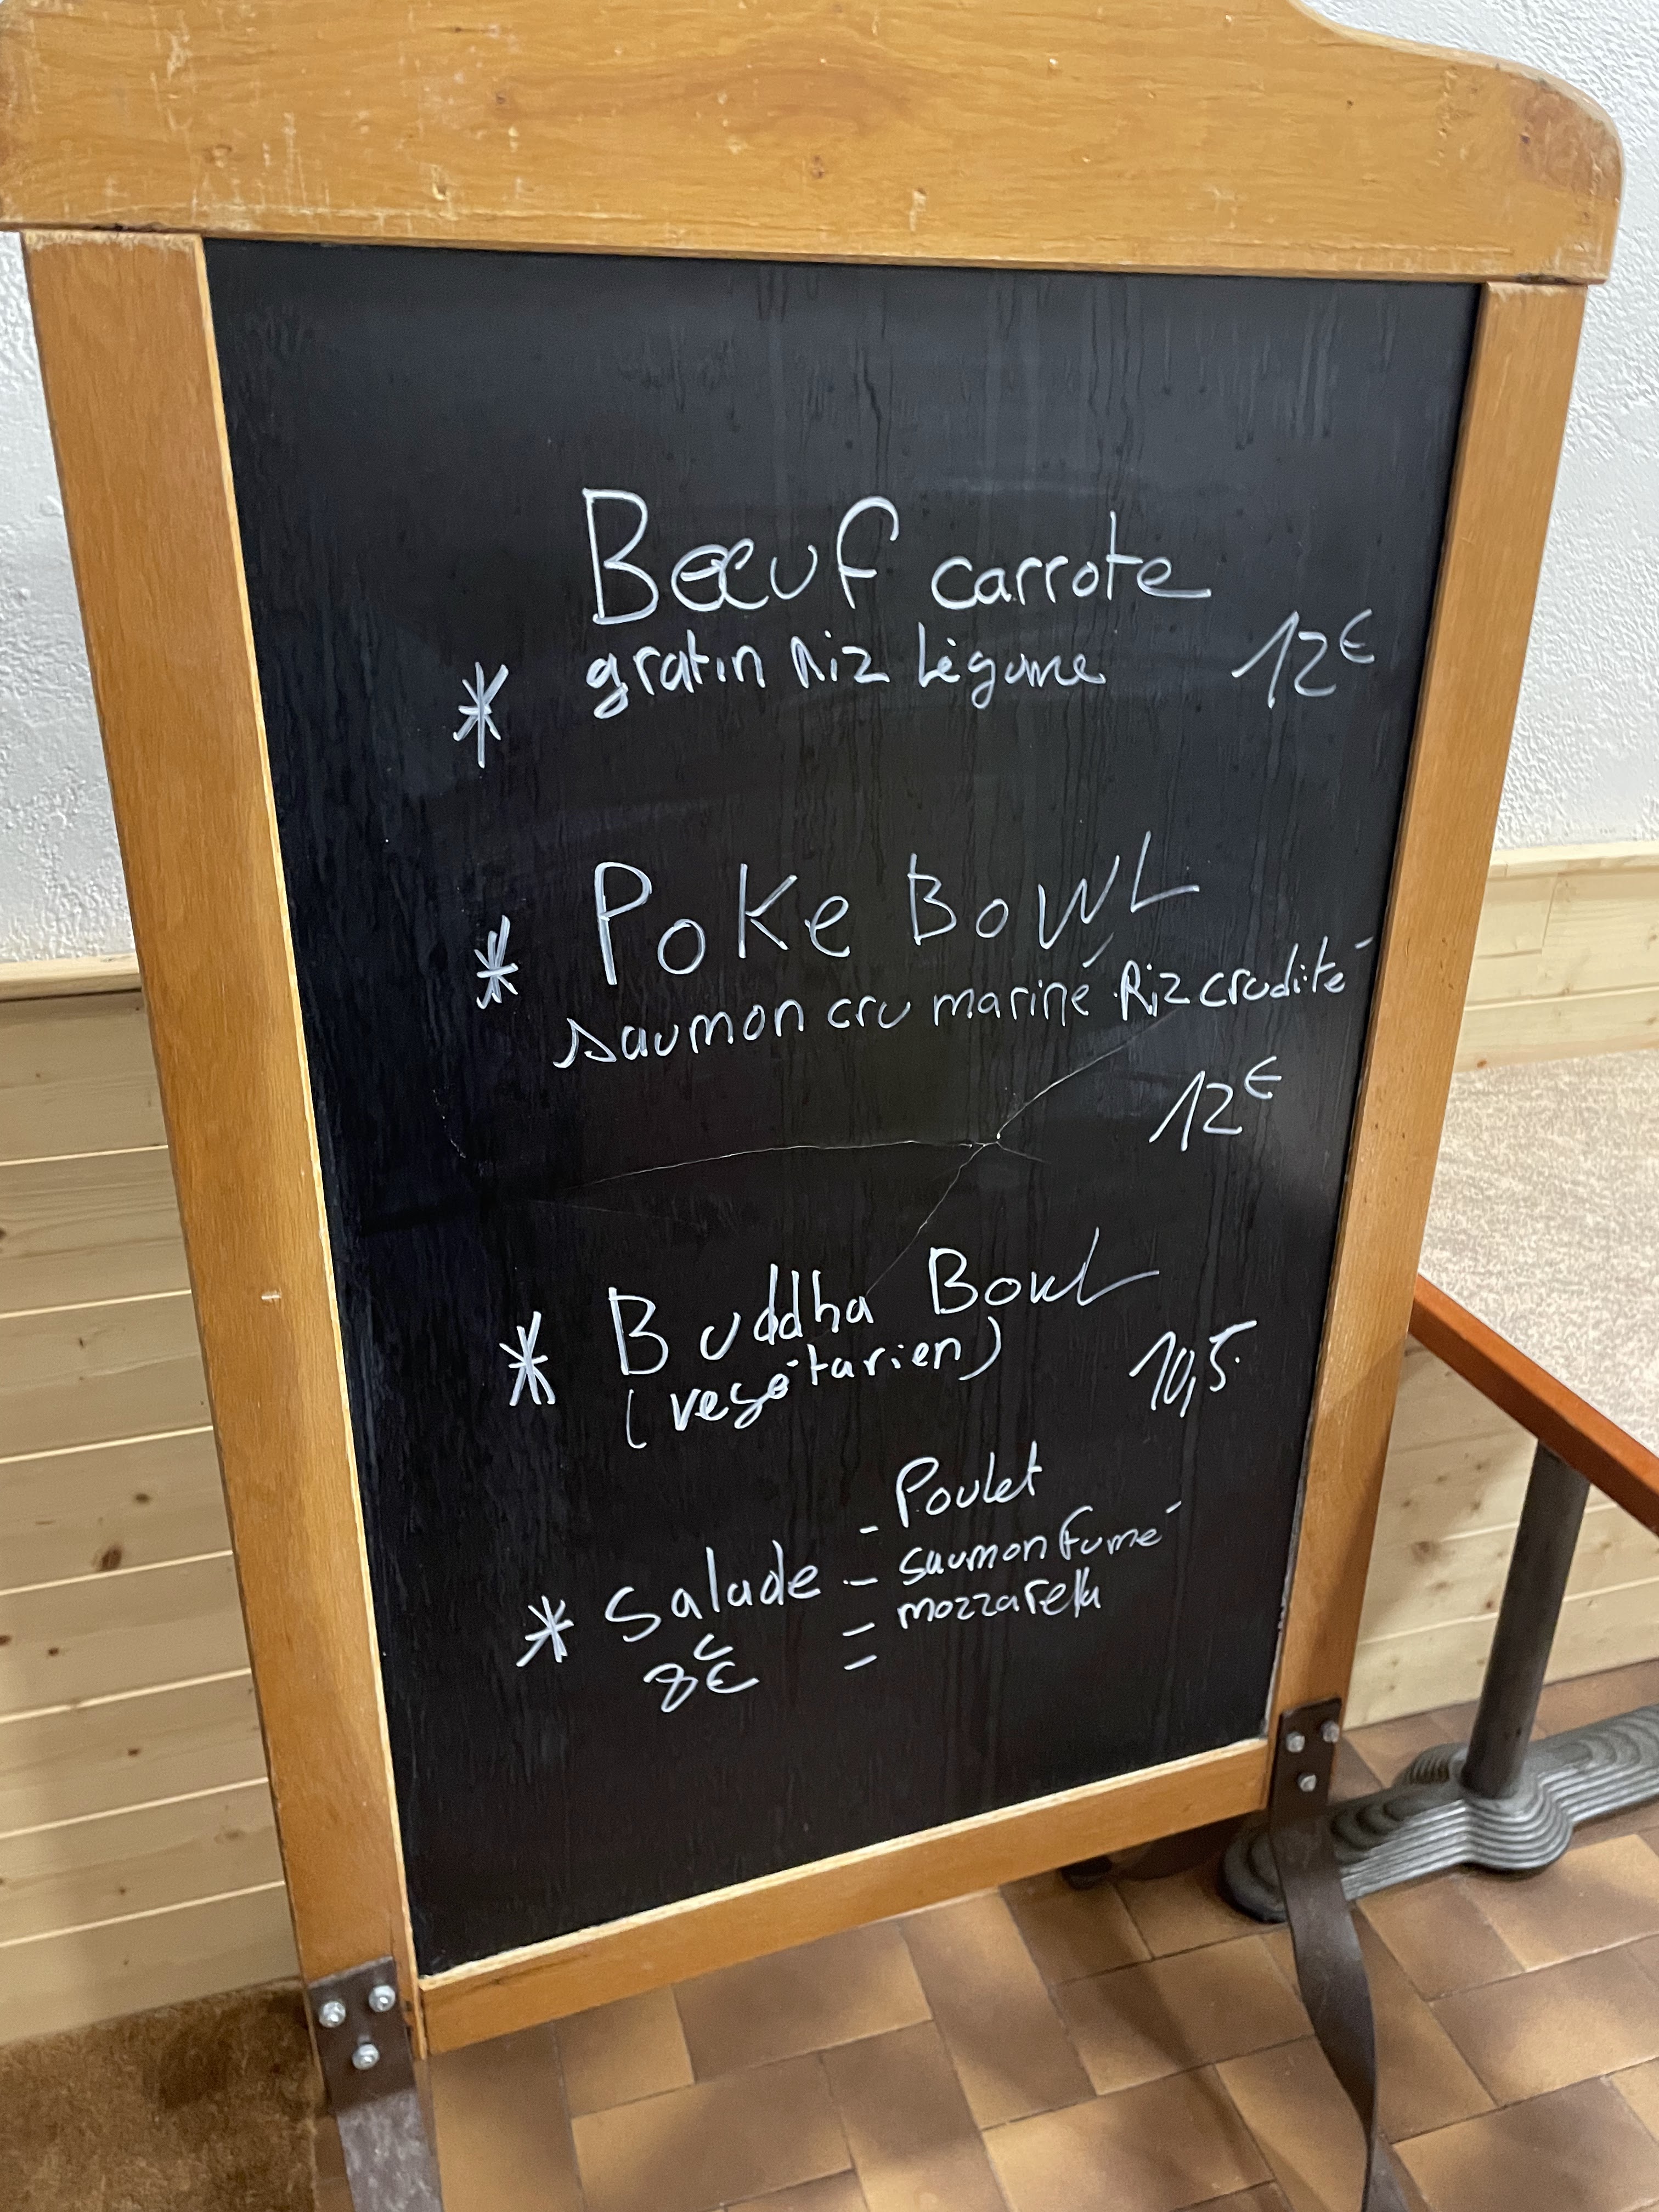 Bœuf carrote
* gratin Riz Légume 12€
* Poke Bowl
saumon cru mariné Riz crudité
12€
* Buddha Bowl
(vegétarien) 10,5
- Poulet
* Salade - saumon fumé
- mozzarella
8€ -